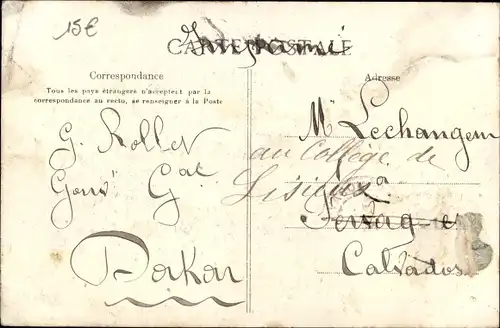 15€
CARTE POSTALE
Correspondance
Tous les pays étrangers n'acceptent pas la
correspondance au recto, se renseigner à la Poste
G. Rollet
Gouv^t G^al
Dakar
Adresse
M^r Lechangeur
au Collège de
Lisieux
à
Calvados